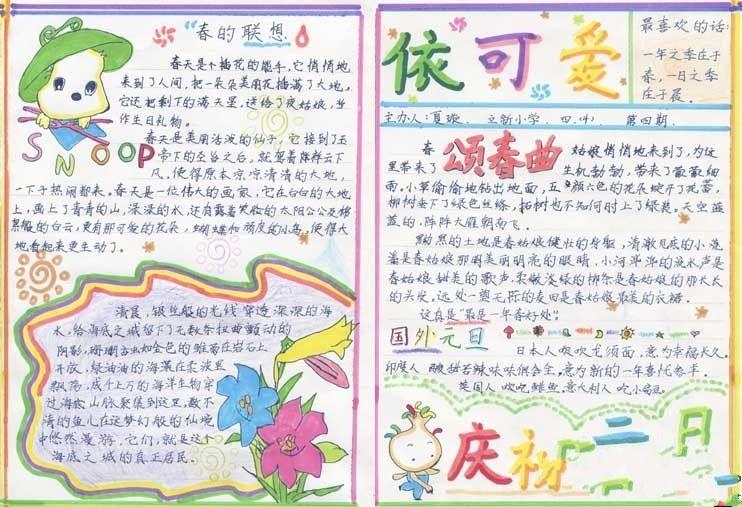 春的联想
春天是个插花的能手,它悄悄地
来到了人间,把一朵朵美丽花插满了大地。
它还把剩下的满天星,送给了夜姑娘,当
作生日礼物。
春天是美丽活泼的仙子,它接到玉
帝下的圣旨之后,就驾着祥云下
凡,使得原本凉凉清清的大地,
一下子热闹起来。春天是一位伟大的画家,它在白白的大地
上,画上了青青的山,深深的水,还有露着笑脸的太阳公公及
的白云,更有那可爱的花朵,蝴蝶和顽皮的小鸟,使得大
地看起来更生动了。
SNOOP
清晨,银丝般的光线穿透深深的海
水,给海底之城留下了无数条扭曲颤动的
阴影,珊瑚虫如金色的雏菊在岩石上
开放,绿油油的海藻在柔波里
飘荡,成千上万的海洋生物穿
过海底山脉聚集到这里,数不
清的鱼儿在这梦幻般的仙境
中悠然漫游,它们,就是这个
海底之城的真正居民。
依可爱
最喜欢的话:
一年之季在于
春,一日之季
在于晨。
主办人:夏璇、立新小学、四、(4) 第四期、
颂春曲
春
姑娘悄悄地来到了,为这
里带来了
生机勃勃,带来了微微细
雨。小草偷偷地钻出地面,五
颜六色的花朵绽开了花蕾,
柳树垂下了绿色丝绦,柘树也不知何时上了绿装。天空蓝
蓝的,阵阵大雁朝南飞。
黝黑的土地是春姑娘健壮的身躯,清澈见底的小流
溪是春姑娘那明美丽明亮的眼睛,小河哗哗的流水声是
春姑娘甜美的歌声,柔嫩浅绿的柳条是春姑娘的那长长
的头发,远处一望无际的麦田是春姑娘最美的衣裙。
这真是"最是一年春好处"!
国外元旦
日本人吸吹龙须面,意为幸福长久。
印度人
酸甜苦辣味味俱会全,意为新的一年喜忧参半。
英国人 吹吃鲱鱼,意大利人 吃小扁豆。
庆祝 元 旦